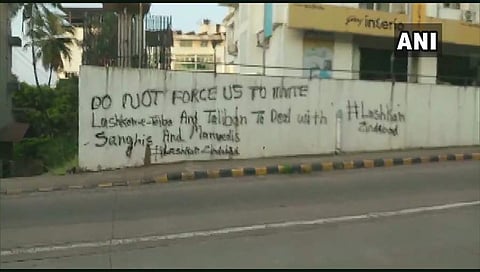 Godrej interio
ANI
DO NOT FORCE US TO INVITE
Lashkar-e-Taiba And Taliban To Deal with
Sanghis And Manvadis
#Lashkar Zindabad
#Lashkar
Zindabad